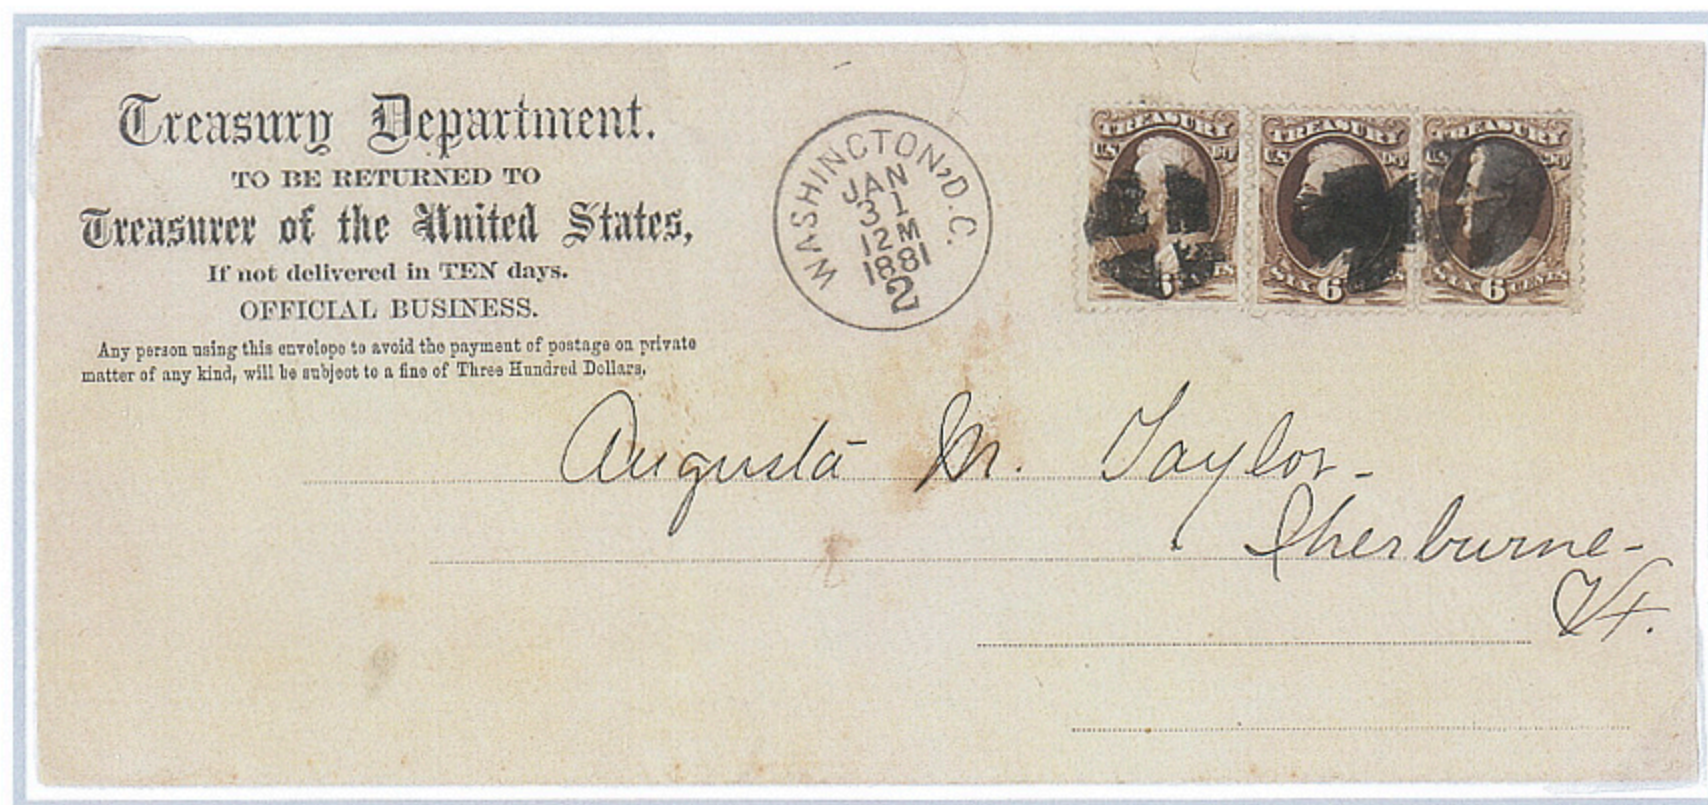 Treasury Department.
TO BE RETURNED TO
Treasurer of the United States,
If not delivered in TEN days.
OFFICIAL BUSINESS.
Any person using this envelope to avoid the payment of postage on private
matter of any kind, will be subject to a fine of Three Hundred Dollars.
WASHINGTON, D.C.
JAN
1881
2
TREASURY
U.S.
6
TREASURY
U.S. DPT
SIX 6 CENTS
TREASURY
U.S. DPT
SIX 6 CENTS
Augusta M. Taylor-
Sherburne-
Vt.